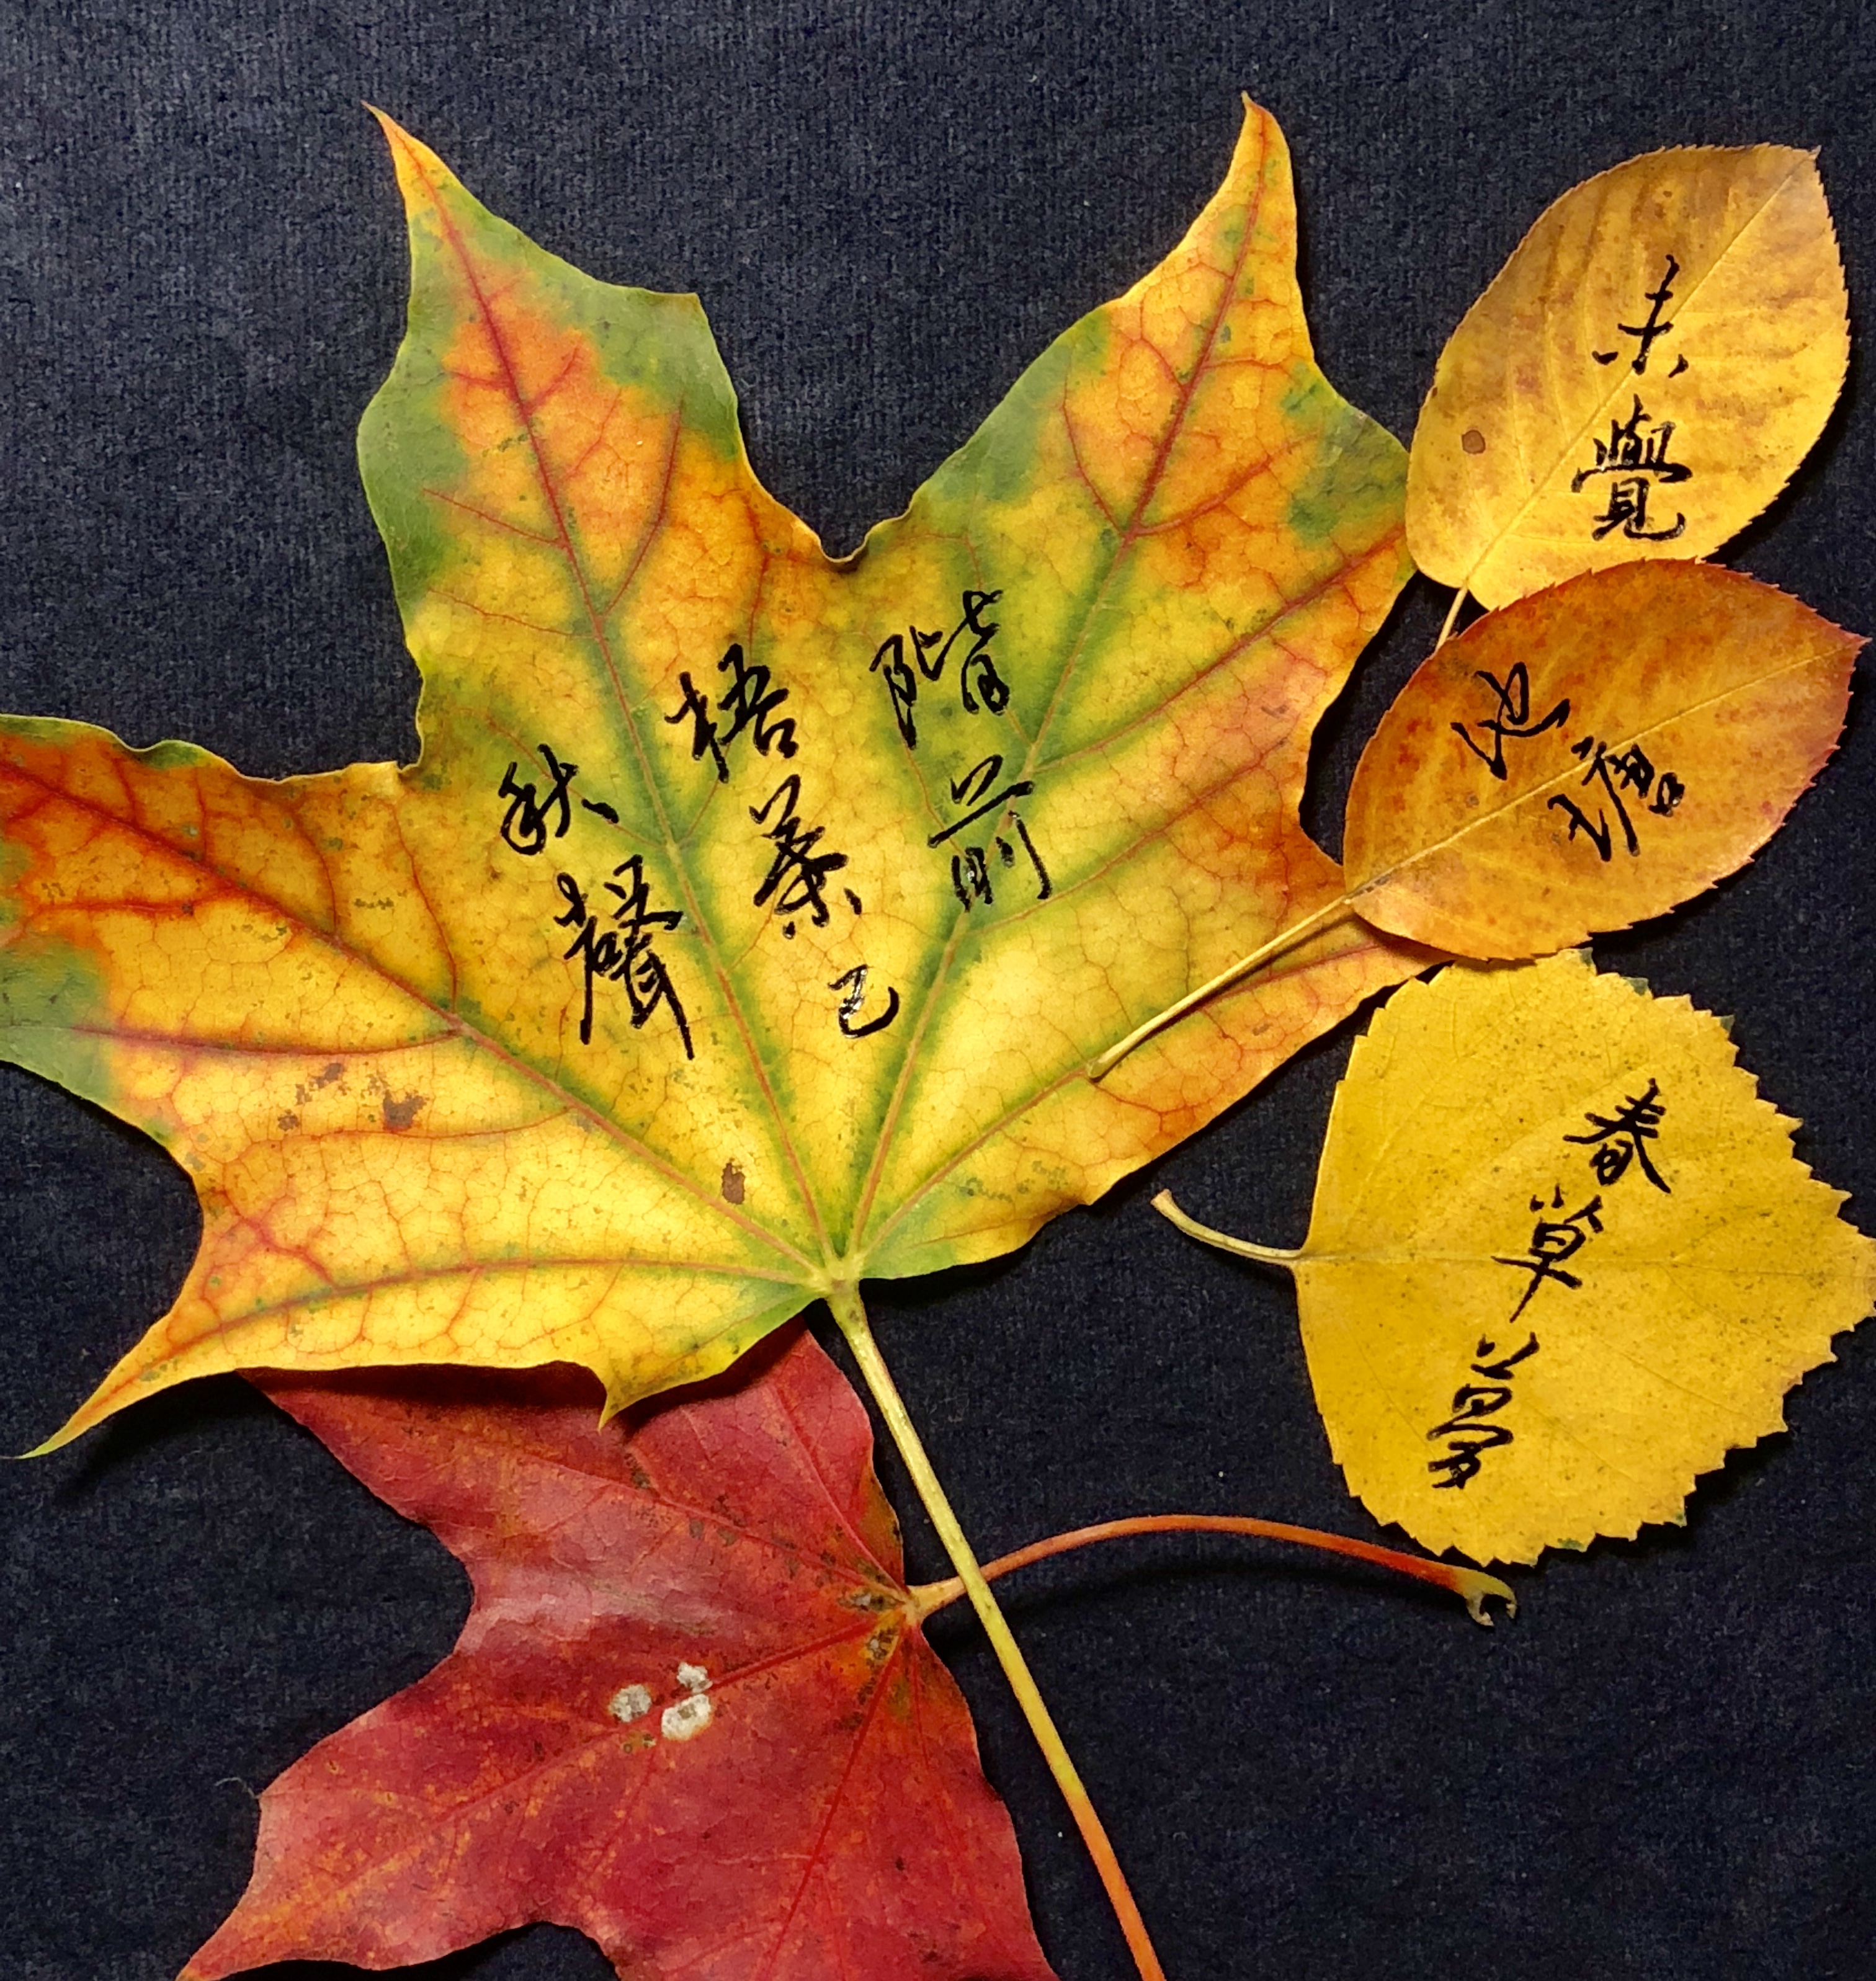 未覺
池塘
春草夢
階前
梧葉已
秋聲